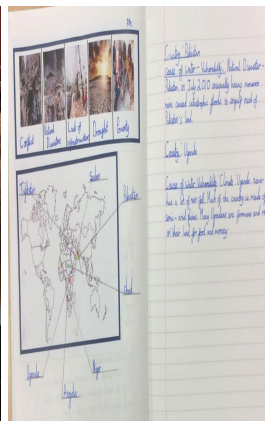 Conflict
Natural Disasters
Lack of Infrastructure
Drought
Poverty
Sudan
Pakistan
Chad
Niger
Angola
Uganda
Country: Pakistan
Cause of Water Vulnerability: Natural Disaster -
Pakistan in July 2010 unusually heavy monsoon
rains caused catastrophic floods to
Pakistan's land.
Country: Uganda
Cause of Water Vulnerability: Climate Uganda never
has a lot of rain fall. Most of the country is made of
semi- and Many Ugandans are farmers and
on their land for food and money.